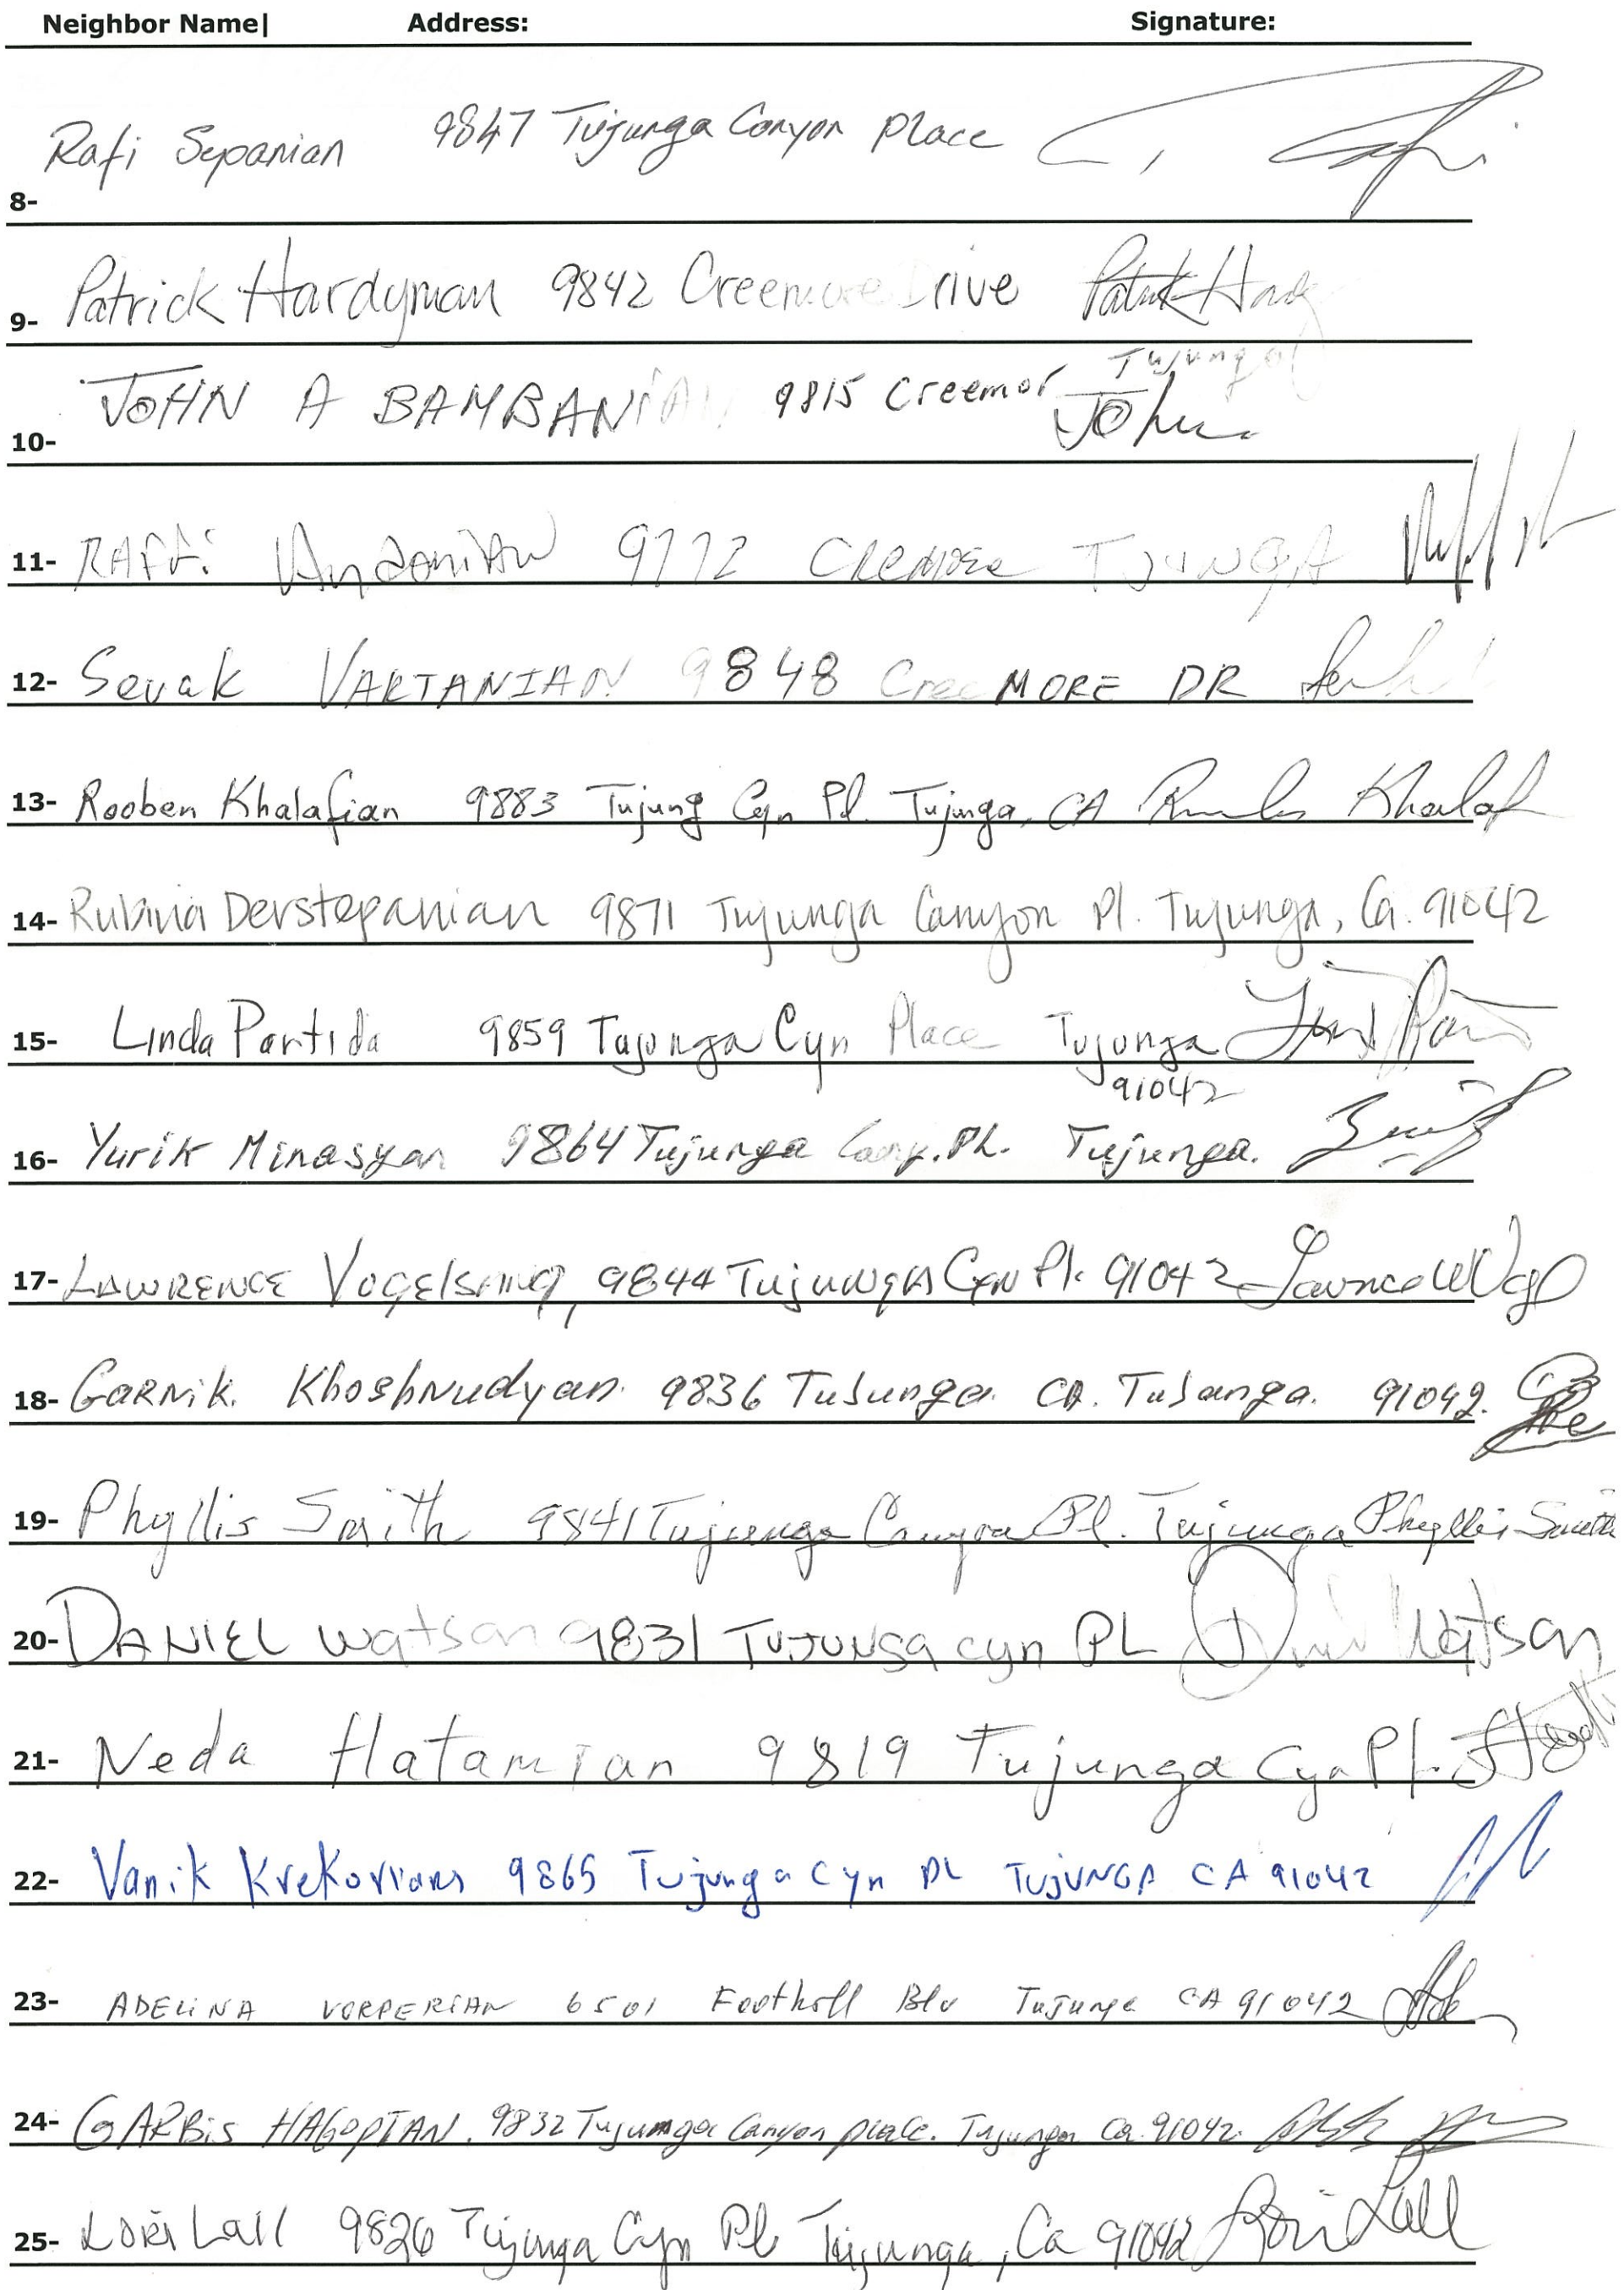 Neighbor Name| Address: Signature:
8- Rafi Sepanian 9847 Tujunga Canyon Place
9- Patrick Hardyman 9842 Creemore Drive Patrick Hardy
Tujunga
10- JOHN A BAMBANIAN 9815 Creemor John
11- RAFFi 9772 Cremore TujUNGA
12- Sevak VARTANIAN 9848 CreeMORE DR
13- Rooben Khalafian 9883 Tujung Cyn Pl. Tujunga, CA Khalaf
14- Rubina Derstepanian 9871 Tujunga Canyon Pl. Tujunga, Ca. 91042
15- Linda Partida 9859 Tujunga Cyn Place Tujunga
91042
16- Yurik Minasyan 9864 Tujunga Cany. Pl. Tujunga.
17- LAWRENCE Vogelsang, 9844 TujuNgA CyN Pl. 91042
18- GARNik. KhoshNudyan. 9836 Tusunga. CA. Tusanga. 91042.
19- Phyllis Smith 9841 Tujunga Canyon Pl. Tujunga Phyllis Smith
20- DANIEL Watson 9831 TUJUNga cyn PL Daniel Watson
21- Neda Hatamian 9819 Tujunga Cyn Pl.
22- Vanik Krekorians 9865 Tujunga Cyn PL TUJUNGA CA 91042
23- ADELINA VORPERIAN 6501 Foothill Blv Tujunga CA 91042
24- GARBis HAGOPIAN. 9832 Tujumga Canyon place. Tujunga Ca. 91042.
25- Lori Lall 9826 Tujunga Cyn Pl Tujunga, Ca 91042 Lori Lall